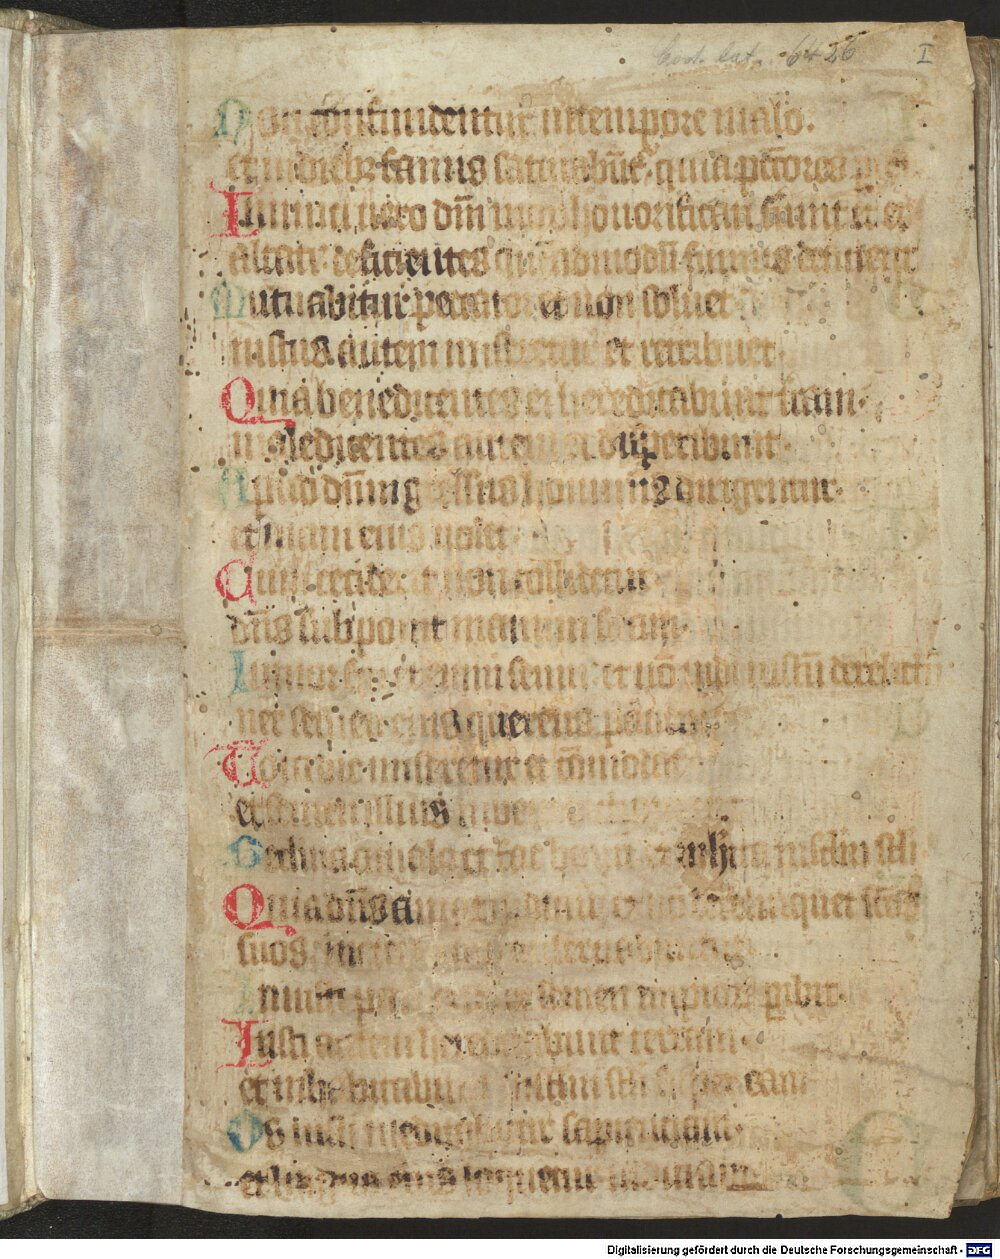 Cod. lat. 6426 I
Non confundentur in tempore malo·
et in dieb; famis saturabūt̄· quia pctores
Inimici vero dm̄ mox honorificati fūint et ex
altati deficientes quēadmodū fumus deficient
Mutuabitur peccator et non soluet
iustus autem miseretur et retribuet
Quia benedicentes ei hereditabunt terram·
maledicentes autem ei disperibunt·
Apud dn̄m gressus hominis dirigentur·
et viam eius volet
Cum ceciderit non collidetur
dn̄s supponit manum suam
Iunior fui etenim senui et nō vidi iustū derelictū
nec semen eius querens panem
Tota die miseretur et cōmodat
et semen illius
Declina a malo et fac bonū et inhita in sclm scli
Quia dn̄s amat iudiciū et nō derelinquet scōs
suos· in eternum conseruabuntur
Iniusti punientur et semen impiorū peribit·
Iusti autem hereditabunt terram
et inhabitabunt in sclm scli super eam
Os iusti meditabitur sapientiam·
et lingua eius loquetur iudicium
Digitalisierung gefördert durch die Deutsche Forschungsgemeinschaft - DFG